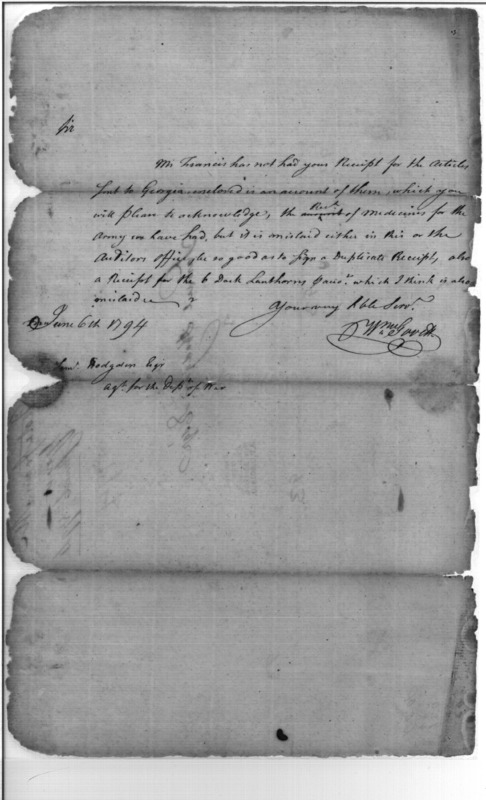 Sir
Mr Francis has not had your Receipt for the Articles
sent to Georgia inclosed is an account of them, which you
will please to acknowledge, the Rect. of Medicines for the
Army we have had, but it is mislaid either in this or the
Auditors office be so good as to sign a Duplicate Receipt, also
a Receipt for the 6 Dark Lanthorns which I think is also
mislaid
Your very Hble Servt.
June 6th 1794
Wm Govett
Saml. Hodgdon Esqr
agt. for the Dept. of War